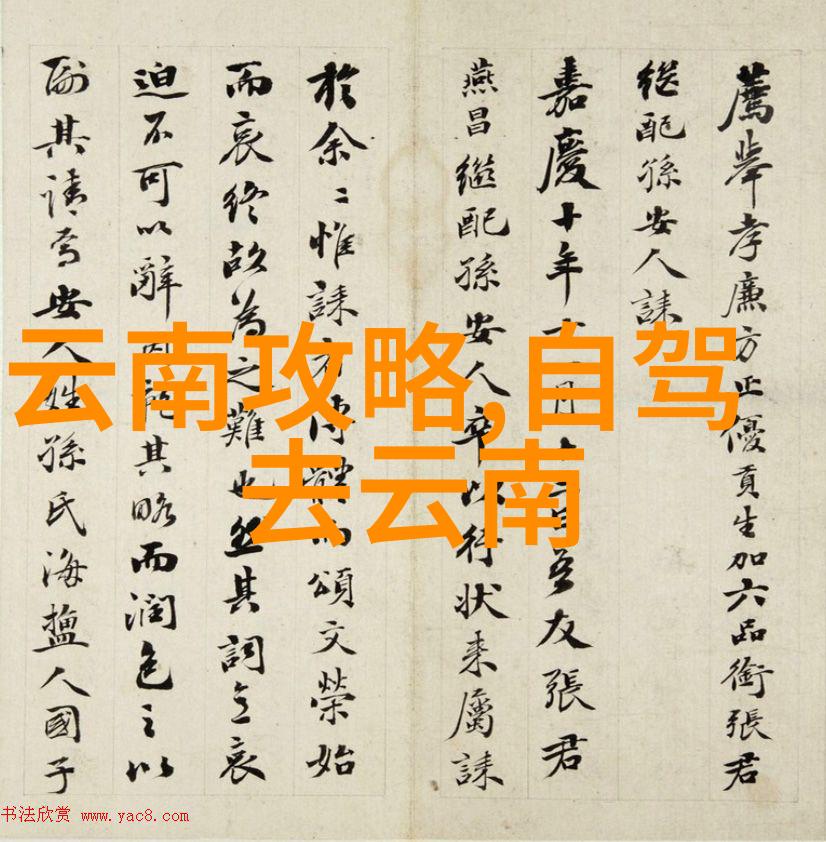 云南攻略,自驾
去云南
薦舉孝廉方正優貢生加六品銜張君
继配孫安人誄
嘉慶十年十月日吾友張君
燕昌继配孫安人卒以行状来屬誄
於余〻惟誄傳體而頌文榮始
而哀終故為之難也然其詞立哀
迫不可以辭因其略而潤色之以
副其請焉安人姓孫氏海鹽人國子
书法欣赏 www.yac8.com